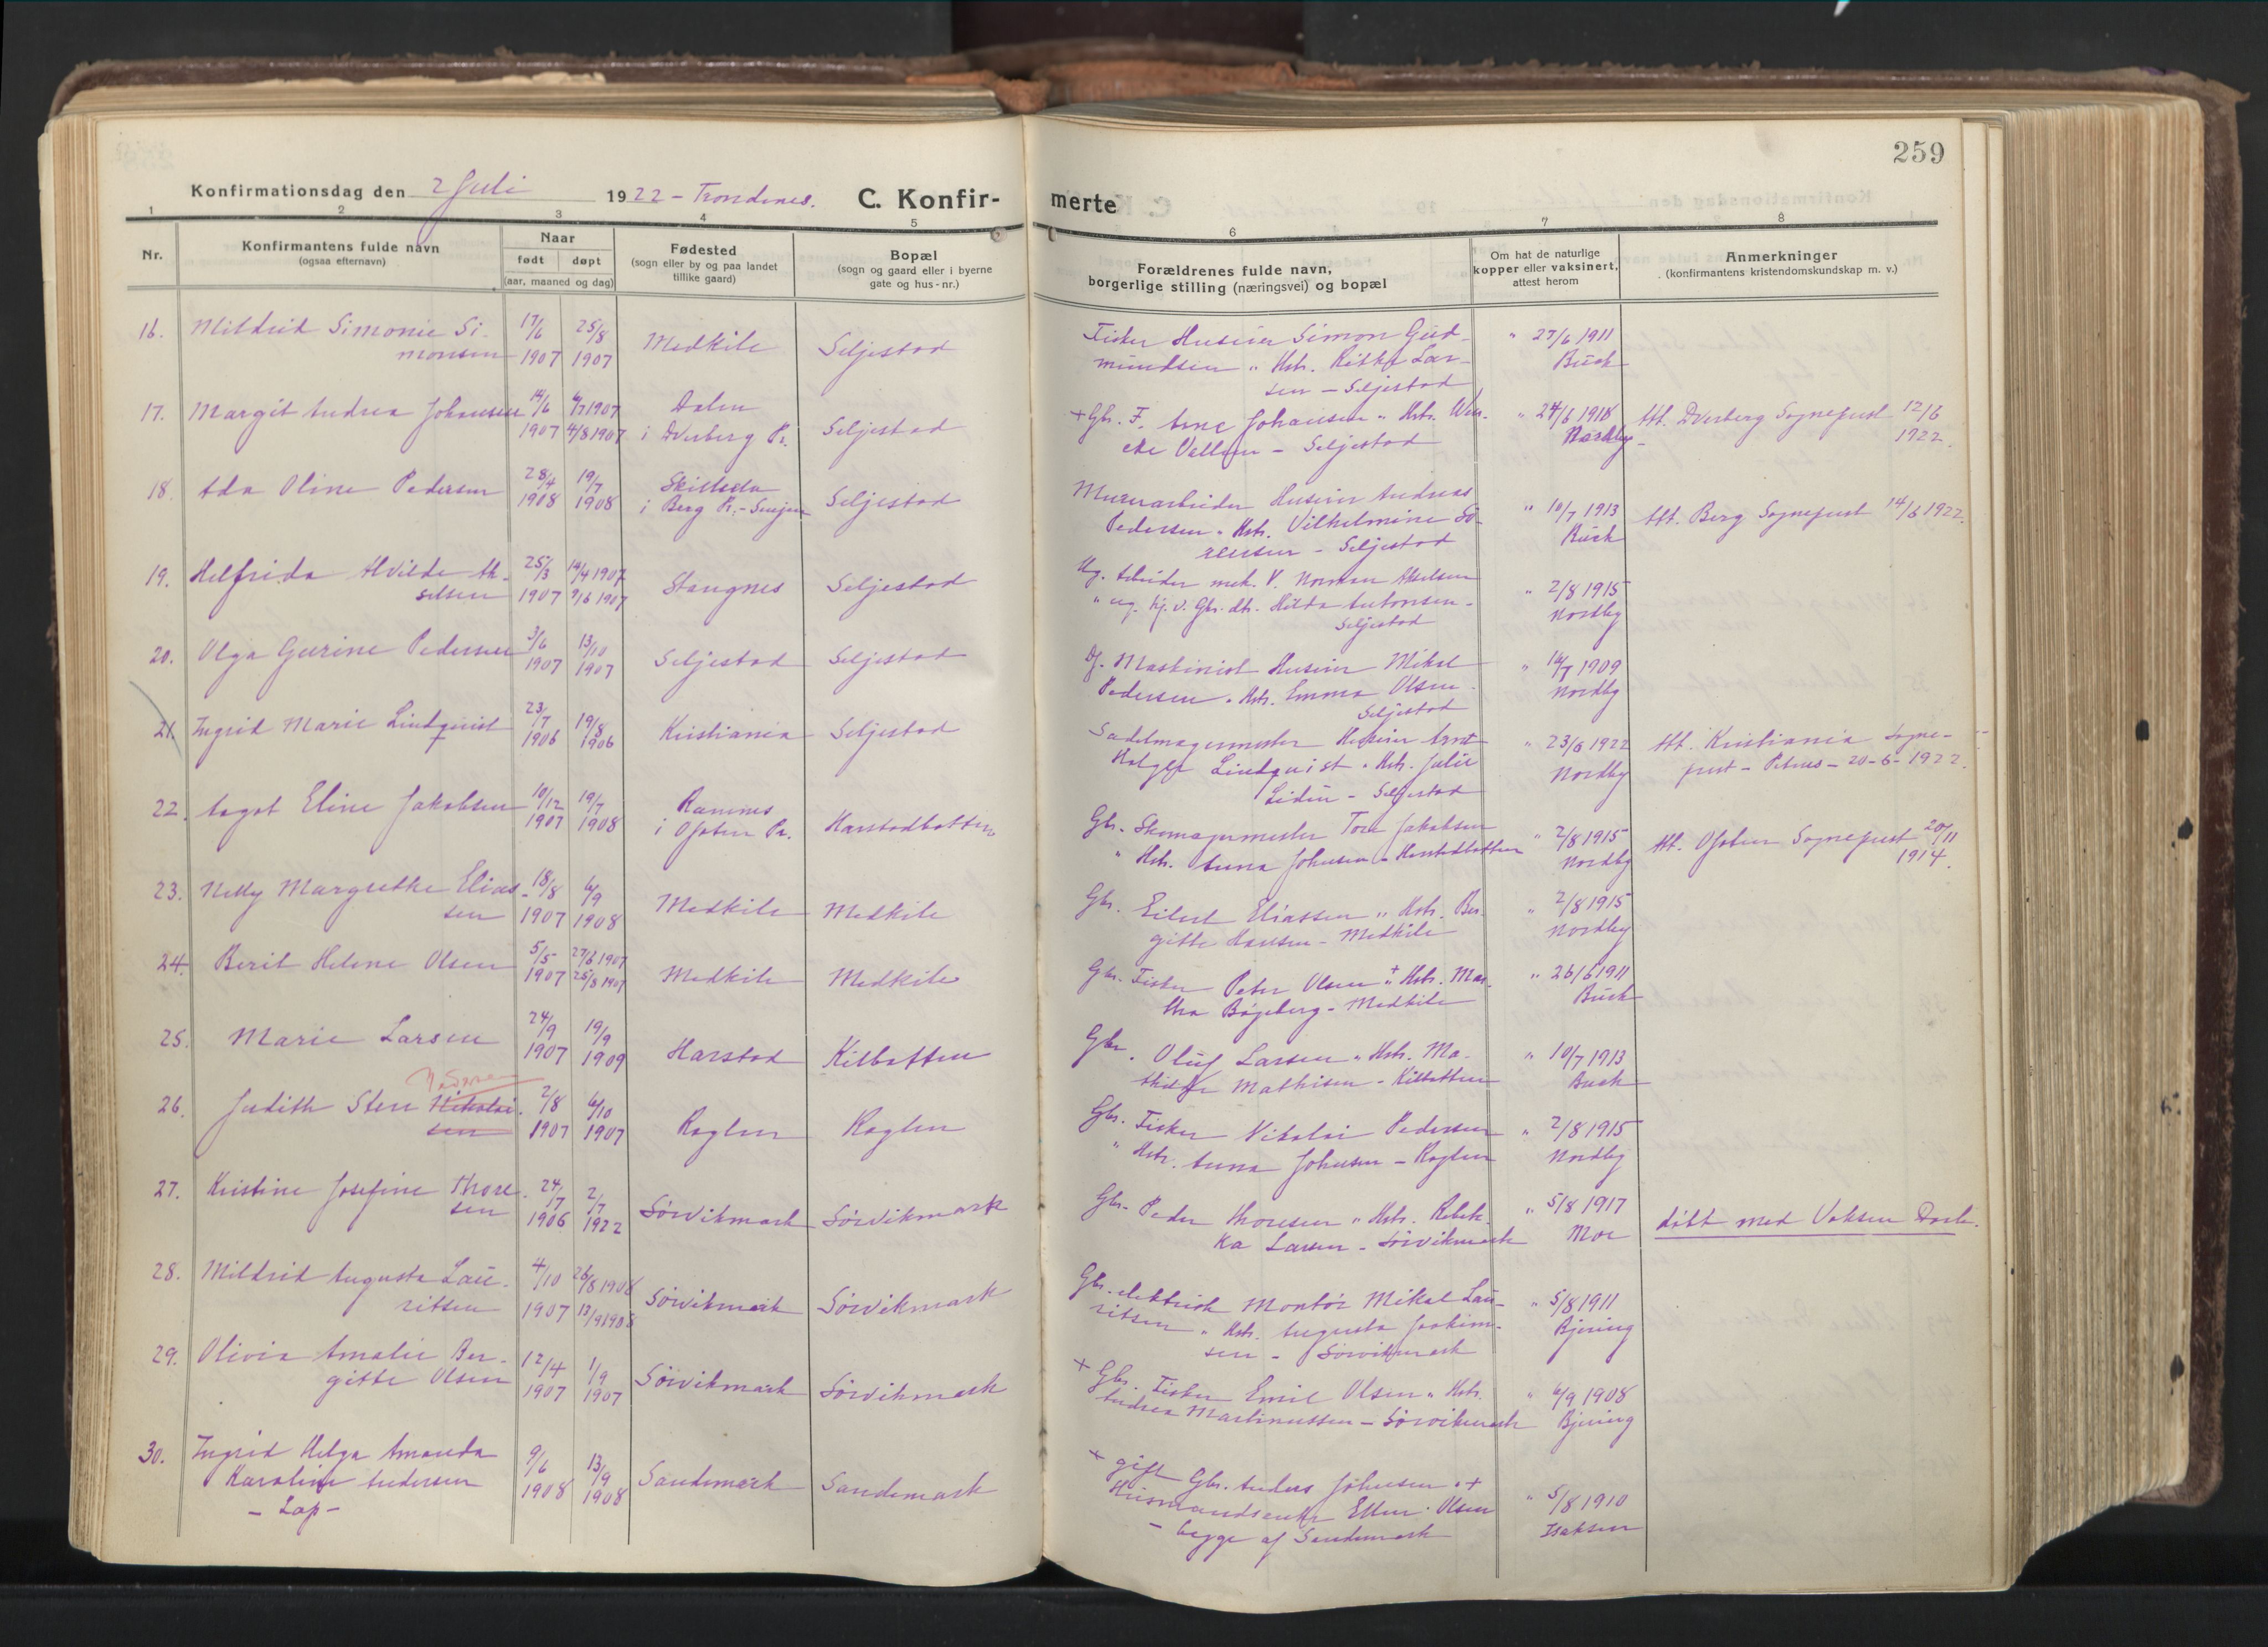 259
Konfirmationsdag den 2 Juli 1922 - Trondenes. C. Konfir-
merte
1 2 3 4 5
6 7 8
Nr.
Konfirmantens fulde navn
(ogsaa efternavn)
Naar
født døpt
(aar, maaned og dag)
Fødested
(sogn eller by og paa landet
tillike gaard)
Bopæl
(sogn og gaard eller i byerne
gate og hus-nr.)
Forældrenes fulde navn,
borgerlige stilling (næringsvei) og bopæl
Om hat de naturlige
kopper eller vaksinert,
attest herom
Anmerkninger
(konfirmantens kristendomskundskap m. v.)
16. Mildrid Simonie Si-
monsen
17/6 1907
25/8 1907
Medkile
Seljestad
Fisker Huseier Simon Gud-
mundsen " Hstr. Rikka Lar-
sen - Seljestad
" 27/6 1911
Buck
17. Margit Andrea Johansen
14/6 1907
4/7 1907
4/8 1907
Dalen
i Dverberg Pr.
Seljestad
+ Gbr. F. Arne Johansen " Hstr.
Seljestad
" 24/6 1918
Nordby
Att. Dverberg Sogneprest 12/6
1922.
18. Ada Oline Pedersen
28/4 1908
19/7 1908
i Berg Pr. - Senjen
Seljestad
Murerarbeider Huseier Andreas
Pedersen " Hstr. Vilhelmine Sö-
rensen - Seljestad
" 10/7 1913
Buck
Att. Berg Sogneprest 14/6 1922.
19. Helfrida Alvilde Ak-
selsen
25/3 1907
14/4 1907
9/6 1907
Stangnes
Seljestad
Ug. Arbeider mek. V. Norman Akselsen
" ug. hj. v. Gbr. dtr. Hilda Antonsen -
Seljestad
" 2/8 1915
Nordby
20. Olga Gurine Pedersen
3/6 1907
13/10 1907
Seljestad
Seljestad
Maskinist Huseier Mikal
Pedersen " Hstr. Emma Olsen -
Seljestad
" 14/7 1909
Nordby
21. Ingrid Marie Lindquist
23/7 1906
19/8 1906
Kristiania
Seljestad
Sadelmagermester Huseier Arnt
Holger Lindquist " Hstr. Julie
Lidén - Seljestad
" 23/6 1922
Nordby
Att. Kristiania Sogne-
prest - Petrus - 20-6-1922.
22. Aagot Eline Jakobsen
10/12 1907
19/7 1908
Ramnes
i Ofoten Pr.
Harstadbotten
Gbr. Skomagermester Tore Jakobsen
" Hstr. Anna Johnsen - Harstadbotten
" 2/8 1915
Nordby
Att. Ofoten Sogneprest 20/11
1914.
23. Nelly Margrethe Elias-
sen
18/8 1907
6/9 1908
Medkile
Medkile
Gbr. Eilert Eliassen " Hstr. Ber-
gitte Hansen - Medkile
" 2/8 1915
Nordby
24. Berit Helene Olsen
5/5 1907
27/6 1907
25/8 1907
Medkile
Medkile
Gbr. Fisker Peter Olsen " + Hstr. Mar-
tha Bøgeberg - Medkile
" 26/6 1911
Buck
25. Marie Larsen
24/9 1907
19/9 1909
Harstad
Kilbotten
Gbr. Oluf Larsen " Hstr. Ma-
thilde Mathisen - Kilbotten
" 10/7 1913
Buck
26. Judith Sten Nikolai-
sen
2/8 1907
6/10 1907
Roglen
Roglen
Gbr. Fisker Nikolai Pedersen
" Hstr. Anna Johnsen - Roglen
" 2/8 1915
Nordby
27. Kristine Josefine Thore-
sen
24/7 1906
2/7 1922
Sörvikmark
Sörvikmark
Gbr. Peder Thoresen " Hstr. Rebek-
ka Larsen - Sörvikmark
" 5/8 1917
Moe
döbt med Voksen Daab.
28. Mildrid Augusta Lau-
ritsen
4/10 1907
26/8 1908
13/9 1908
Sörvikmark
Sörvikmark
Gbr. elektrisk Montör Mikal Lau-
ritsen " Hstr. Augusta Joakim-
sen - Sörvikmark
" 5/8 1911
Bjering
29. Olivia Amalie Ber-
gitte Olsen
12/4 1907
1/9 1907
Sörvikmark
Sörvikmark
+ Gbr. Fisker Emil Olsen " Hstr.
Andrea Martinussen - Sörvikmark
" 6/9 1908
Bjering
30. Ingrid Helga Amanda
Karoline Andersen
- Lap -
9/6 1908
13/9 1908
Sandemark
Sandemark
+ gift Gbr. Anders Johnsen " +
Husmandsenke Ellen Olsen
- begge af Sandemark
" 5/8 1910
Isaksen